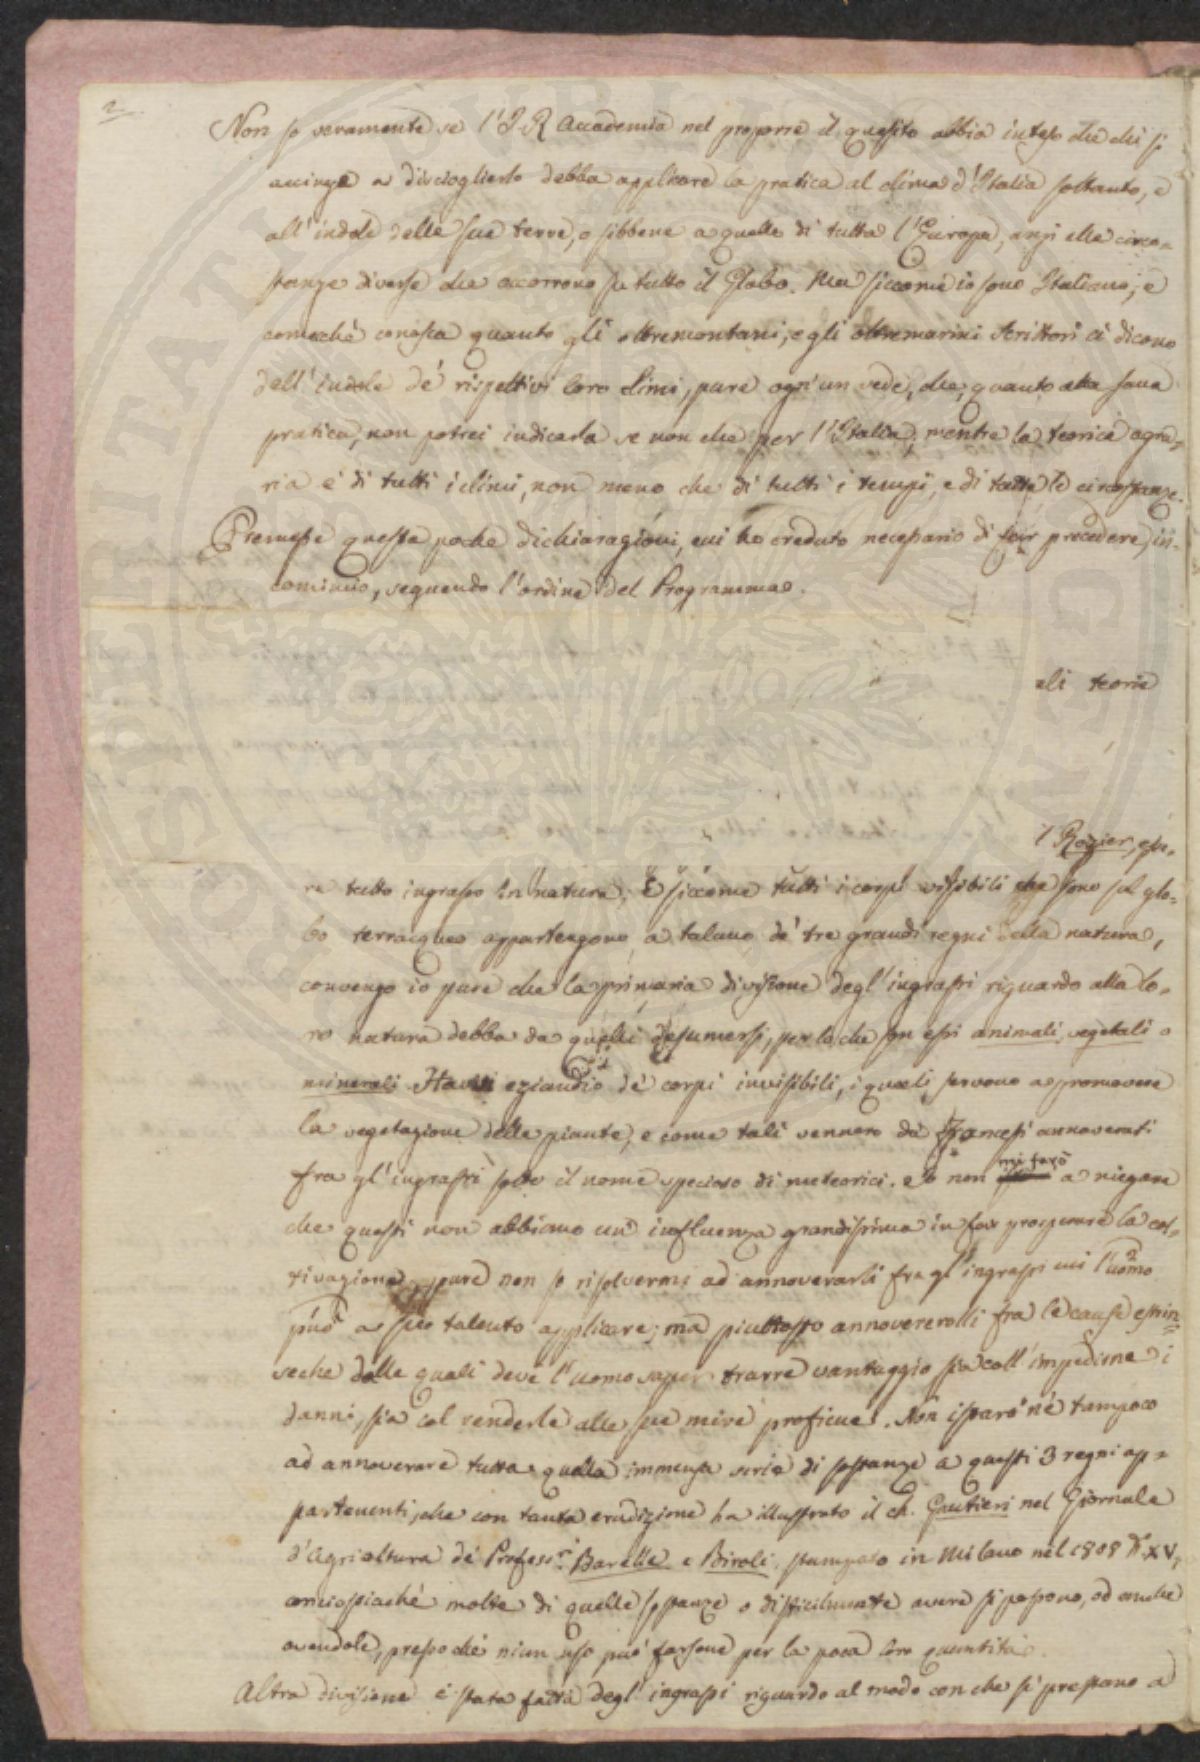 2
Non so veramente se l'I. R. Accademia nel proporre il quesito abbia inteso che chi si
accinge a disciogliesto debba applicare la pratica al clima d'Italia soltanto, e
all'indole delle sue terre, o sibbene a quelle di tutta l'Europa, anzi alle circo-
stanze diverse che occorrono su tutto il Globo. Ma siccome io sono Italiano, e
comechè conosca quanto gli oltremontani, e gli oltremarini Scrittori ci dicono
dell'indole de' rispettivi loro climi, pure ogn'un vede, che, quanto alla sana
pratica, non potrei indicarla se non che per l'Italia, mentre la teorica agra-
ria è di tutti i climi, non meno che di tutti i tempi, e di tutte le circostanze.
Premesse queste poche dichiarazioni, cui ho creduto necessario di far precedere, in-
comincio, seguendo l'ordine del Programma.
eli teorie
l Rozier, esse-
re tutto ingrasso in natura. E siccome tutti i corpi visibili che sono sul glo-
bo terracqueo appartengono a taluno de' tre grandi regni della natura,
convengo io pure che la primaria divisione degl'ingrassi riguardo alla lo-
ro natura debba da quelli desumersi, per lo che son essi animali, vegetali o
minerali. Havvi eziandio de' corpi invisibili, i quali servono a promovere
la vegetazione delle piante, e come tali vennero da' Francesi annoverati
fra gl'ingrassi sotto il nome specioso di meteorici. Io non mi farò a niegare
che questi non abbiano un'influenza grandissima in far prosperare la col-
tivazione, pure non so risolvermi ad annoverarli fra gl'ingrassi cui l'uomo
può a suo talento applicare; ma piuttosto annovererolli fra le cause estrin-
seche dalle quali deve l'uomo saper trarre vantaggio sia coll'impedirne i
danni, sia col renderle alle sue mire proficue. Non istarò nè tampoco
ad annoverare tutta quella immensa serie di sostanze a questi 3 regni ap-
partenenti, che con tanta erudizione ha illustrato il ch. Gautieri nel Giornale
d'Agricoltura de' Profess.ri Barelle e Biroli, stampato in Milano nel 1808 N. XV,
conciossiachè molte di quelle sostanze o difficilmente avere si possono, od anche
avendole, pressochè niun uso può farsene per la poca loro quantità.
Altra divisione è stata fatta degl'ingrassi riguardo al modo con che si prestano a